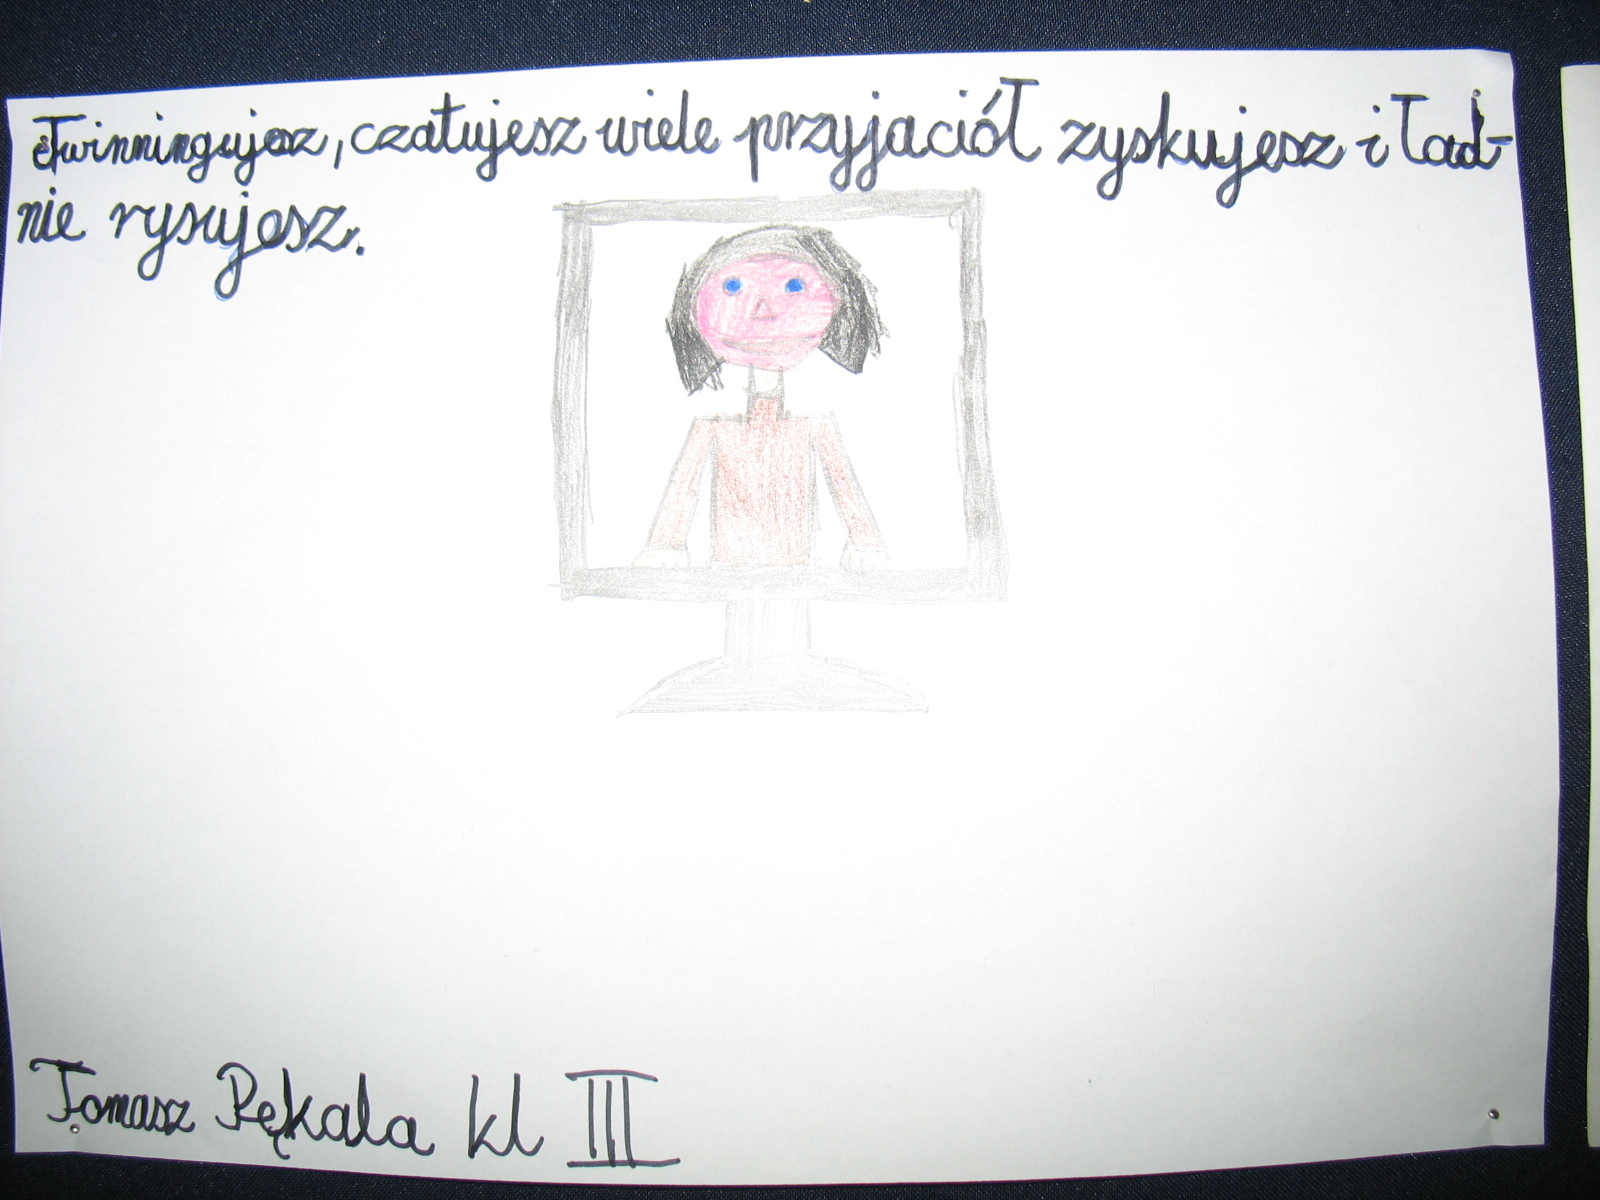 eTwinningujesz, czatujesz wiele przyjaciół zyskujesz i ład-
nie rysujesz.
Tomasz Pękala kl III